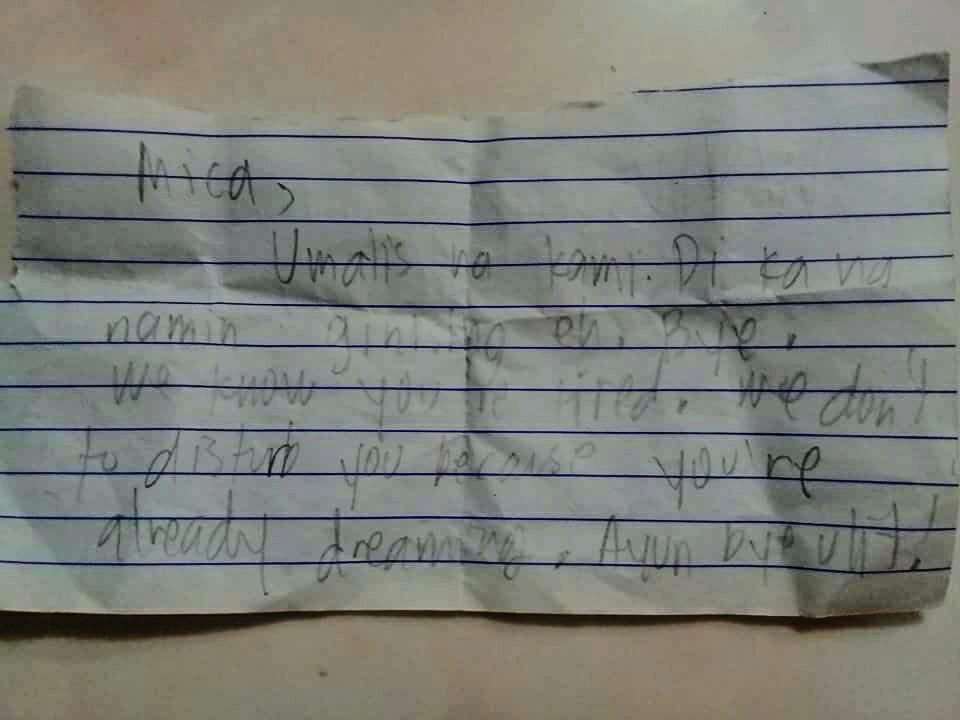 Mica,
Umalis na kami. Di ka na
namin ginising eh. Bye.
We know you're tired. We don't
to disturb you because you're
already dreaming. Ayun bye ulit!